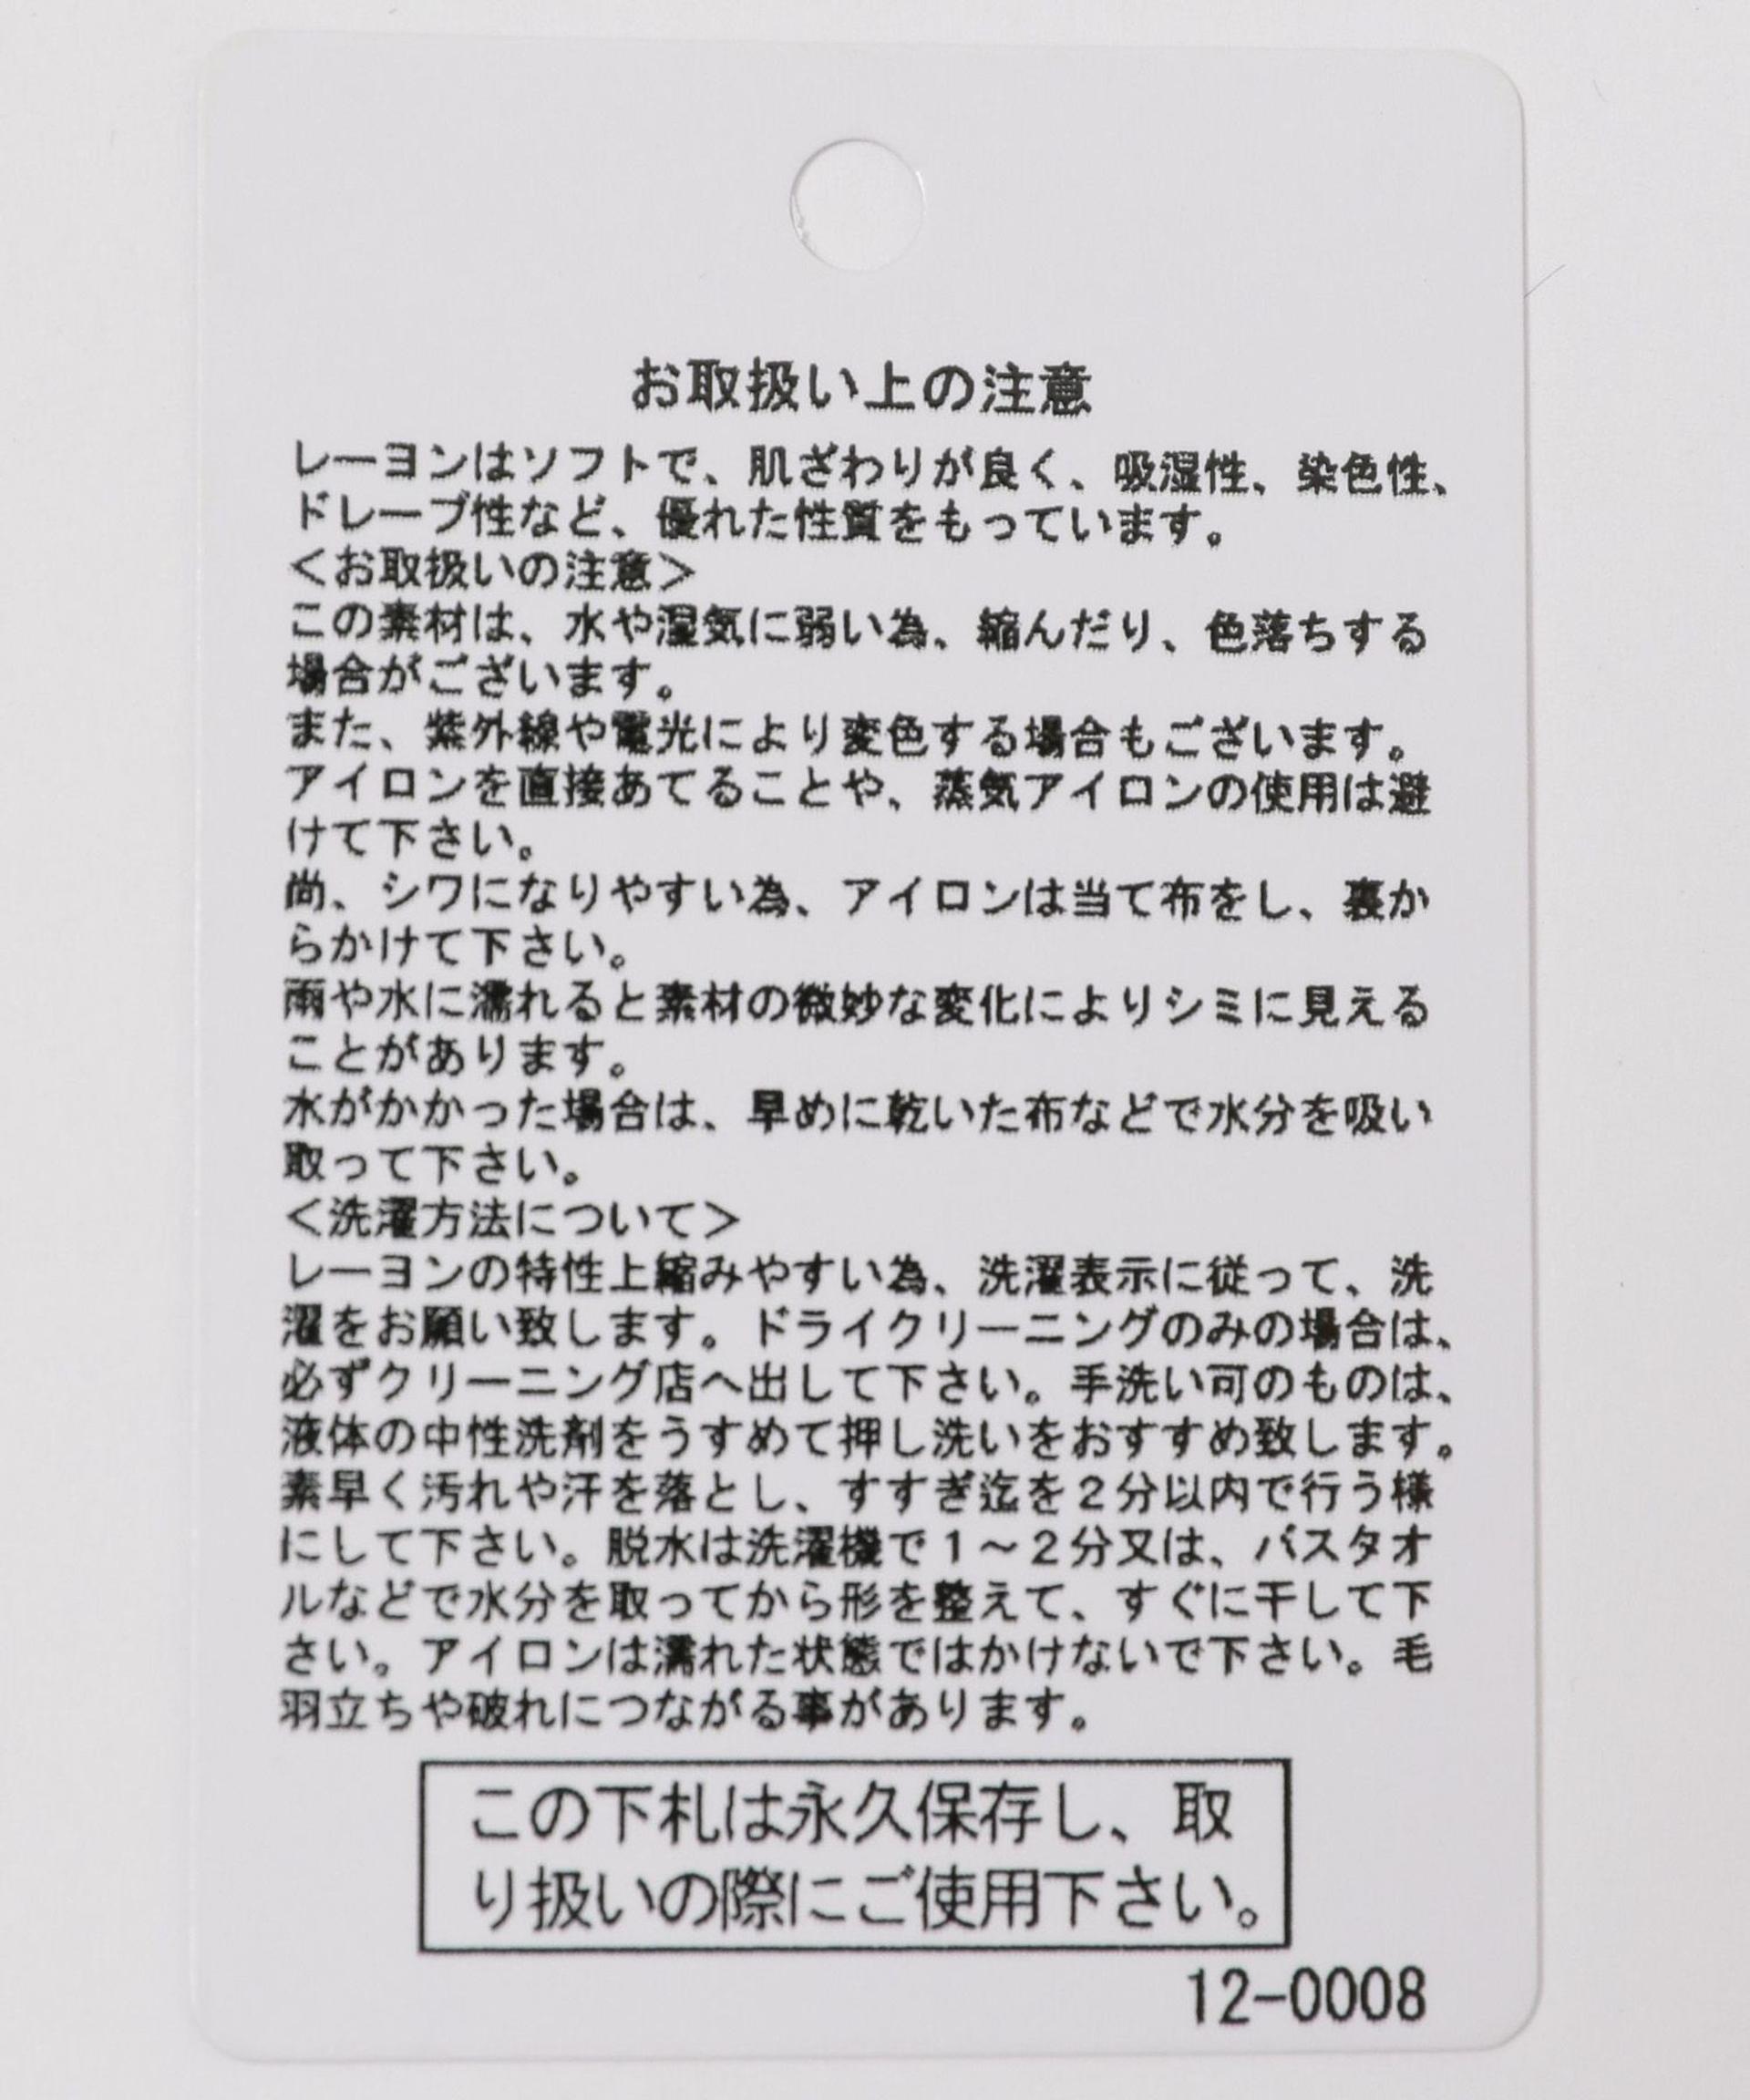 お取扱い上の注意
レーヨンはソフトで、肌ざわりが良く、吸湿性、染色性、
ドレープ性など、優れた性質をもっています。
＜お取扱いの注意＞
この素材は、水や湿気に弱い為、縮んだり、色落ちする
場合がございます。
また、紫外線や電光により変色する場合もございます。
アイロンを直接あてることや、蒸気アイロンの使用は避
けて下さい。
尚、シワになりやすい為、アイロンは当て布をし、裏か
らかけて下さい。
雨や水に濡れると素材の微妙な変化によりシミに見える
ことがあります。
水がかかった場合は、早めに乾いた布などで水分を吸い
取って下さい。
＜洗濯方法について＞
レーヨンの特性上縮みやすい為、洗濯表示に従って、洗
濯をお願い致します。ドライクリーニングのみの場合は、
必ずクリーニング店へ出して下さい。手洗い可のものは、
液体の中性洗剤をうすめて押し洗いをおすすめ致します。
素早く汚れや汗を落とし、すすぎ迄を２分以内で行う様
にして下さい。脱水は洗濯機で１～２分又は、バスタオ
ルなどで水分を取ってから形を整えて、すぐに干して下
さい。アイロンは濡れた状態ではかけないで下さい。毛
羽立ちや破れにつながる事があります。
この下札は永久保存し、取
り扱いの際にご使用下さい。
12-0008